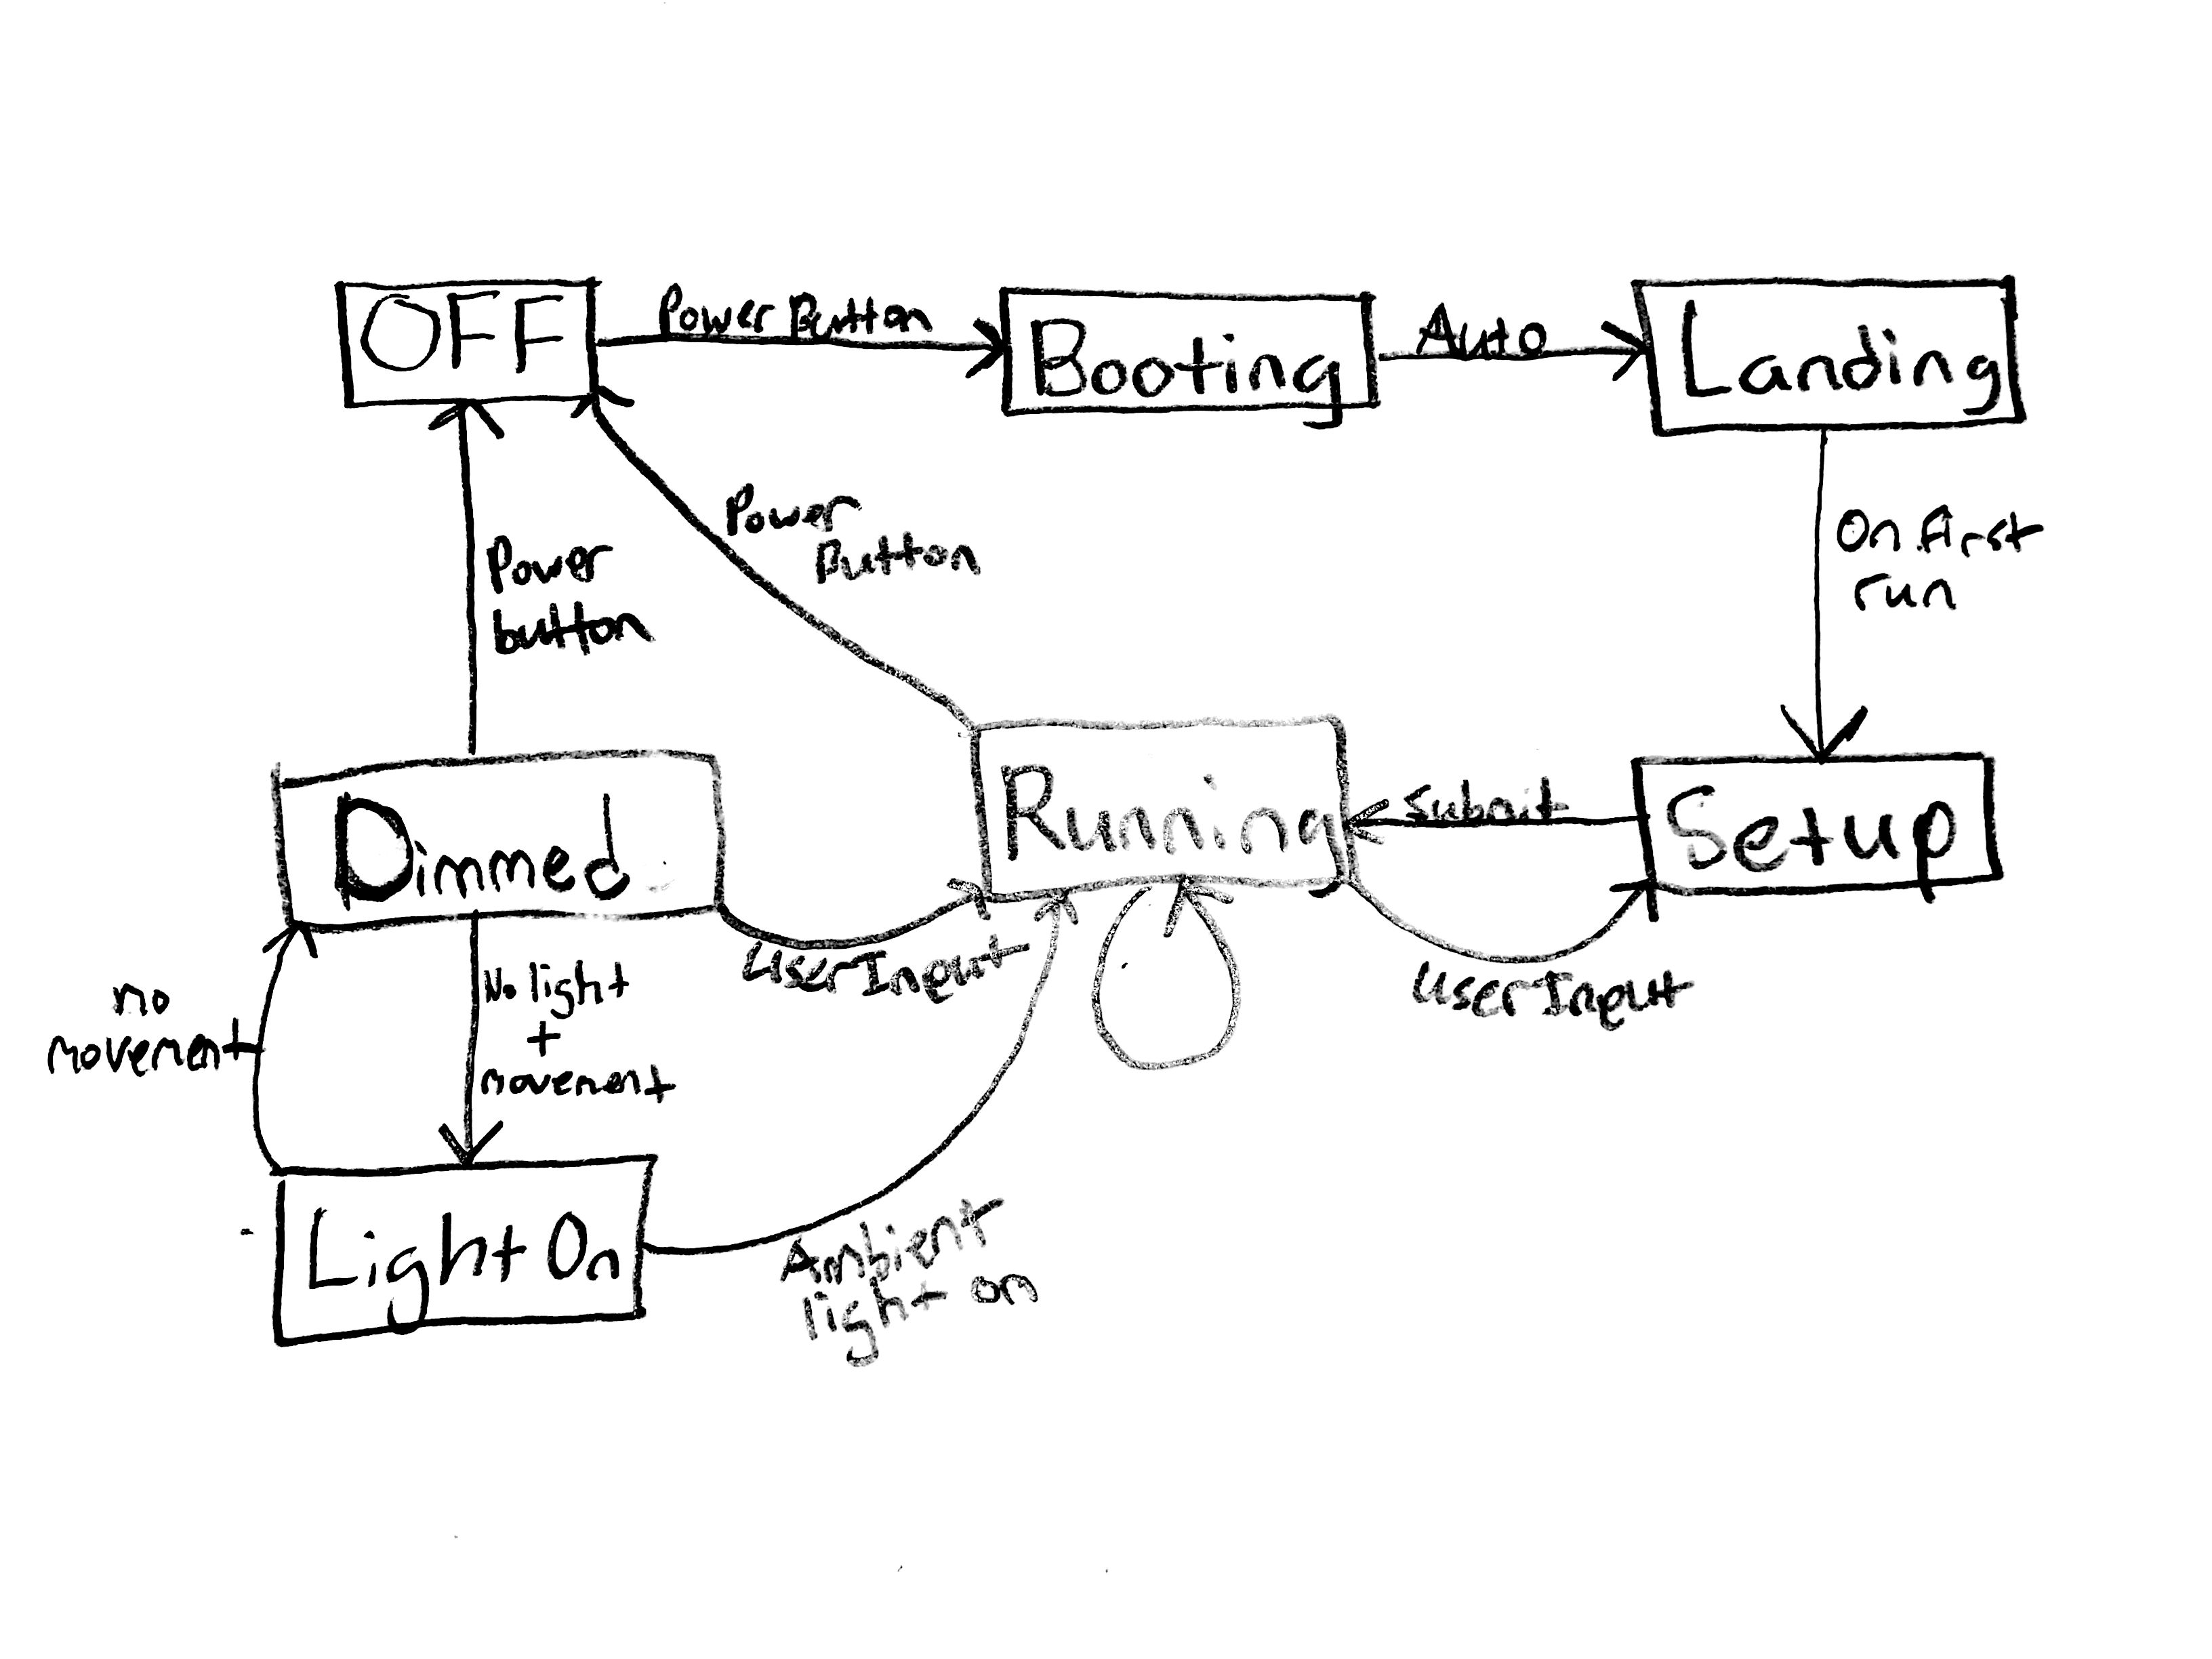 OFF
Power Button
Booting
Auto
Landing
On first
run
Power
Button
Power
button
Dimmed
Running
Submit
Setup
User Input
User Input
no
movement
No light
+
movement
Light On
Ambient
light on